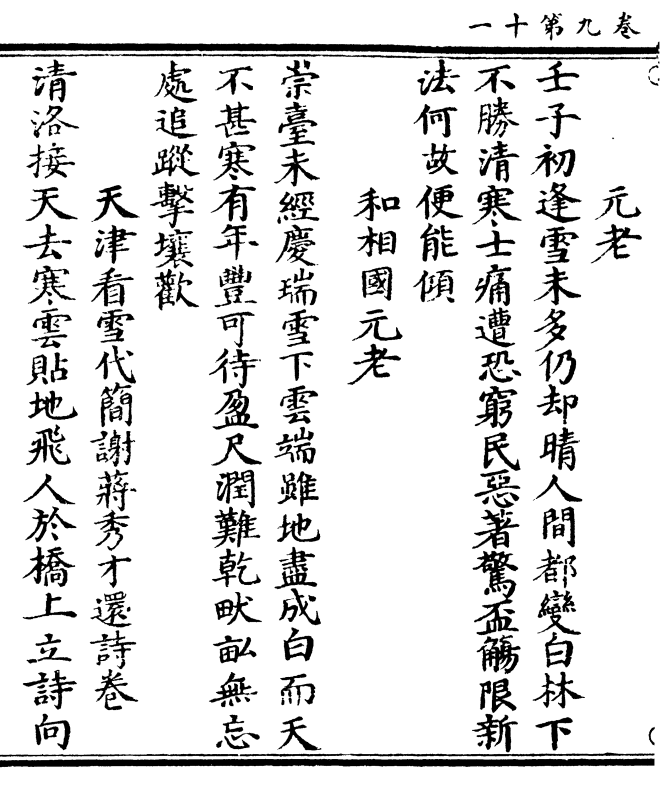 卷九第十一
元老
壬子初逢雪未多仍却晴人間都變白林下
不勝清寒士痛遭恐窮民惡著驚盃觴限新
法何故便能傾
和相國元老
崇臺未經慶瑞雪下雲端雖地盡成白而天
不甚寒有年豐可待盈尺潤難乾畎畝無忘
處追蹤擊壤歡
天津看雪代簡謝蔣秀才還詩卷
清洛接天去寒雲貼地飛人於橋上立詩向